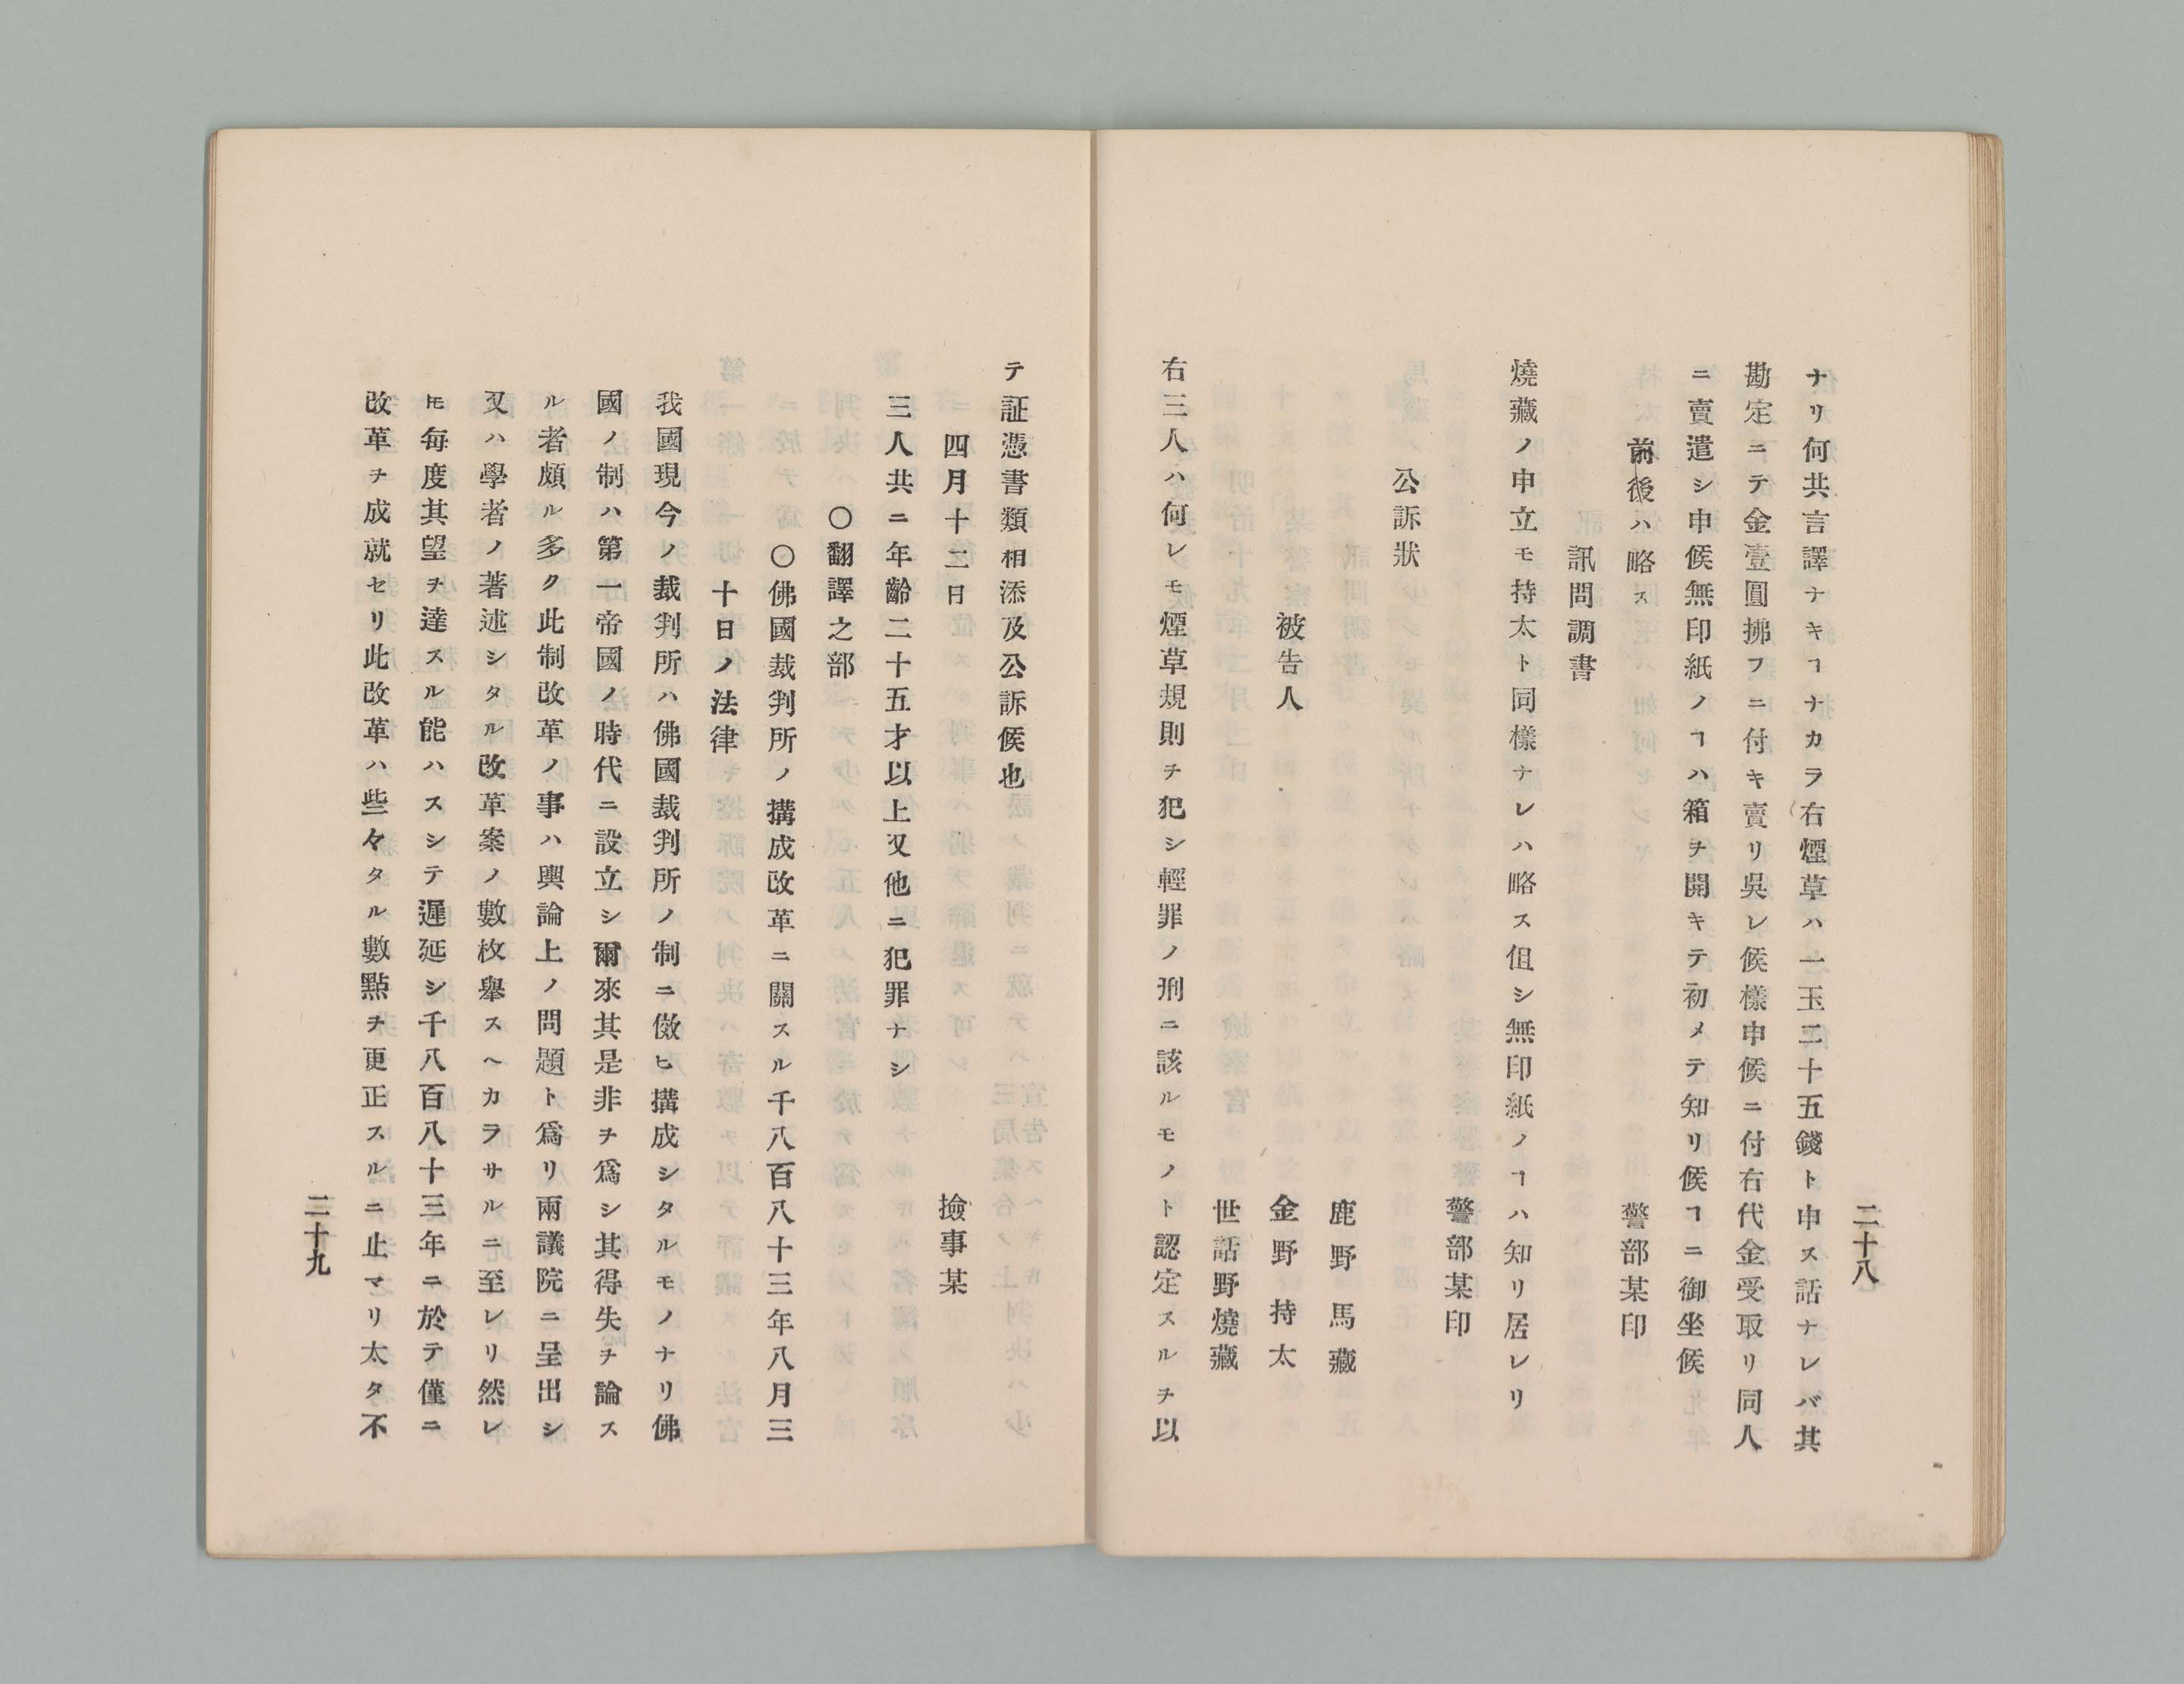 二十八
ナリ何共言譯ナキヿナカラ右煙草ハ一玉二十五錢ト申ス話ナレバ其
勘定ニテ金壹圓拂フニ付キ賣リ吳レ候樣申候ニ付右代金受取リ同人
ニ賣遣シ申候無印紙ノヿハ箱ヲ開キテ初メテ知リ候ヿニ御坐候
前後ハ略ス　警部某印
訊問調書
燒藏ノ申立モ持太ト同樣ナレハ略ス伹シ無印紙ノヿハ知リ居レリ
警部某印
公訴狀
鹿野馬藏
被告人　金野持太
世話野燒藏
右三人ハ何レモ煙草規則ヲ犯シ輕罪ノ刑ニ該ルモノト認定スルヲ以
テ証憑書類相添及公訴候也
四月十二日　撿事某
三人共ニ年齡二十五才以上又他ニ犯罪ナシ
○翻譯之部
○佛國裁判所ノ搆成改革ニ關スル千八百八十三年八月三
十日ノ法律
我國現今ノ裁判所ハ佛國裁判所ノ制ニ傚ヒ搆成シタルモノナリ佛
國ノ制ハ第一帝國ノ時代ニ設立シ爾來其是非ヲ爲シ其得失ヲ論ス
ル者頗ル多ク此制改革ノ事ハ輿論上ノ問題ト爲リ兩議院ニ呈出シ
又ハ學者ノ著述シタル改革案ノ數枚擧スヘカラサルニ至レリ然レ
𪜈每度其望ヲ達スル能ハスシテ遲延シ千八百八十三年ニ於テ僅ニ
改革ヲ成就セリ此改革ハ些々タル數點ヲ更正スルニ止マリ太タ不
二十九